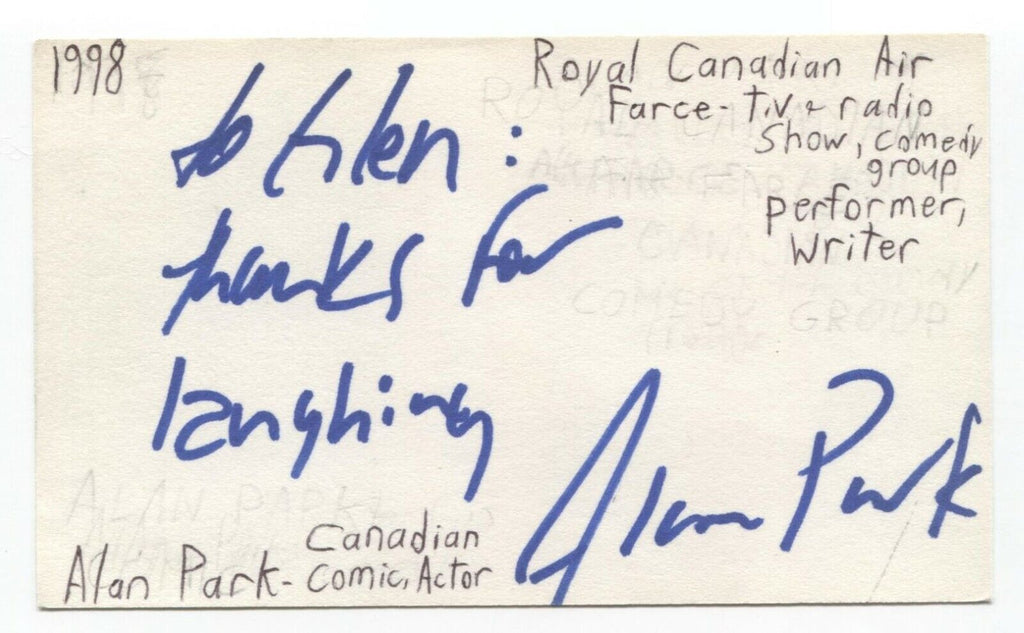 1998
Royal Canadian Air
Farce - t.v. & radio
Show, comedy
group
performer,
Writer
to Glen:
thanks for
laughing
Alan Park
Canadian
Alan Park - Comic, Actor
ALAN PARK
COMEDY GROUP